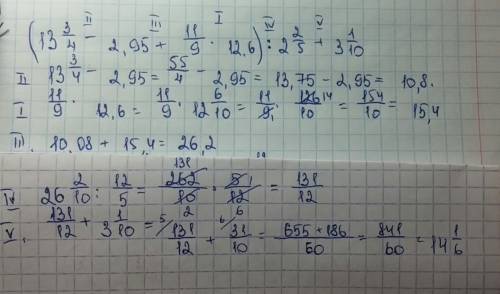 II III I IV V
(13 3/4 - 2,95 + 11/9 · 12,6) : 2 2/5 + 3 1/10
II 13 3/4 - 2,95 = 55/4 - 2,95 = 13,75 - 2,95 = 10,8.
I 11/9 · 12,6 = 11/9 · 12 6/10 = 11/9 · 126 14/10 = 154/10 = 15,4
III. 10,08 + 15,4 = 26,2
IV 26 2/10 : 12/5 = 262 131/10 · 5 1/12 = 131/12
V. 131/12 + 3 1/10 = 5/131/12 + 6/31/10 = 655 + 186/60 = 841/60 = 14 1/6